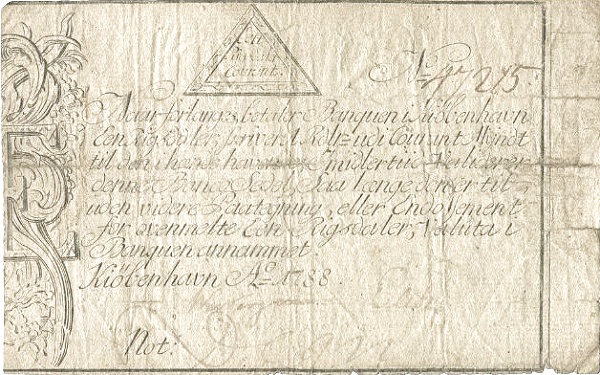 Een
Rigsdaler
Courant.
No 47215.
Naar forlanges, betaler Banquen i Kiöbenhavn
Een Rigsdaler, skriver 1 Rdlr. udi Courant Myndt
til den i hænde havende; Imidlertiid Validerer
denne Banco Sedel, saa længe den er til
uden videre Paategning, eller Endosement,
for ovenmelte Een Rigsdaler, Valuta i
Banquen annammet.
Kiöbenhavn Ao 1788.
Not: